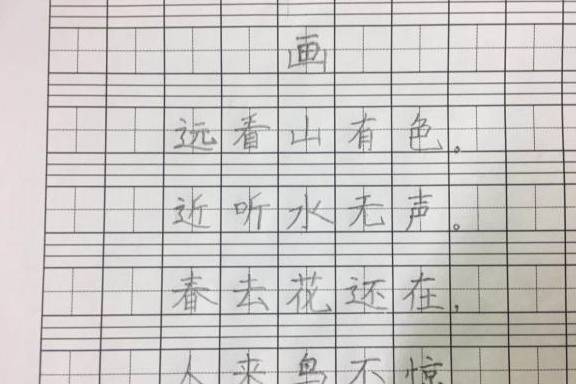 画
远看山有色。
近听水无声。
春去花还在,
人来鸟不惊